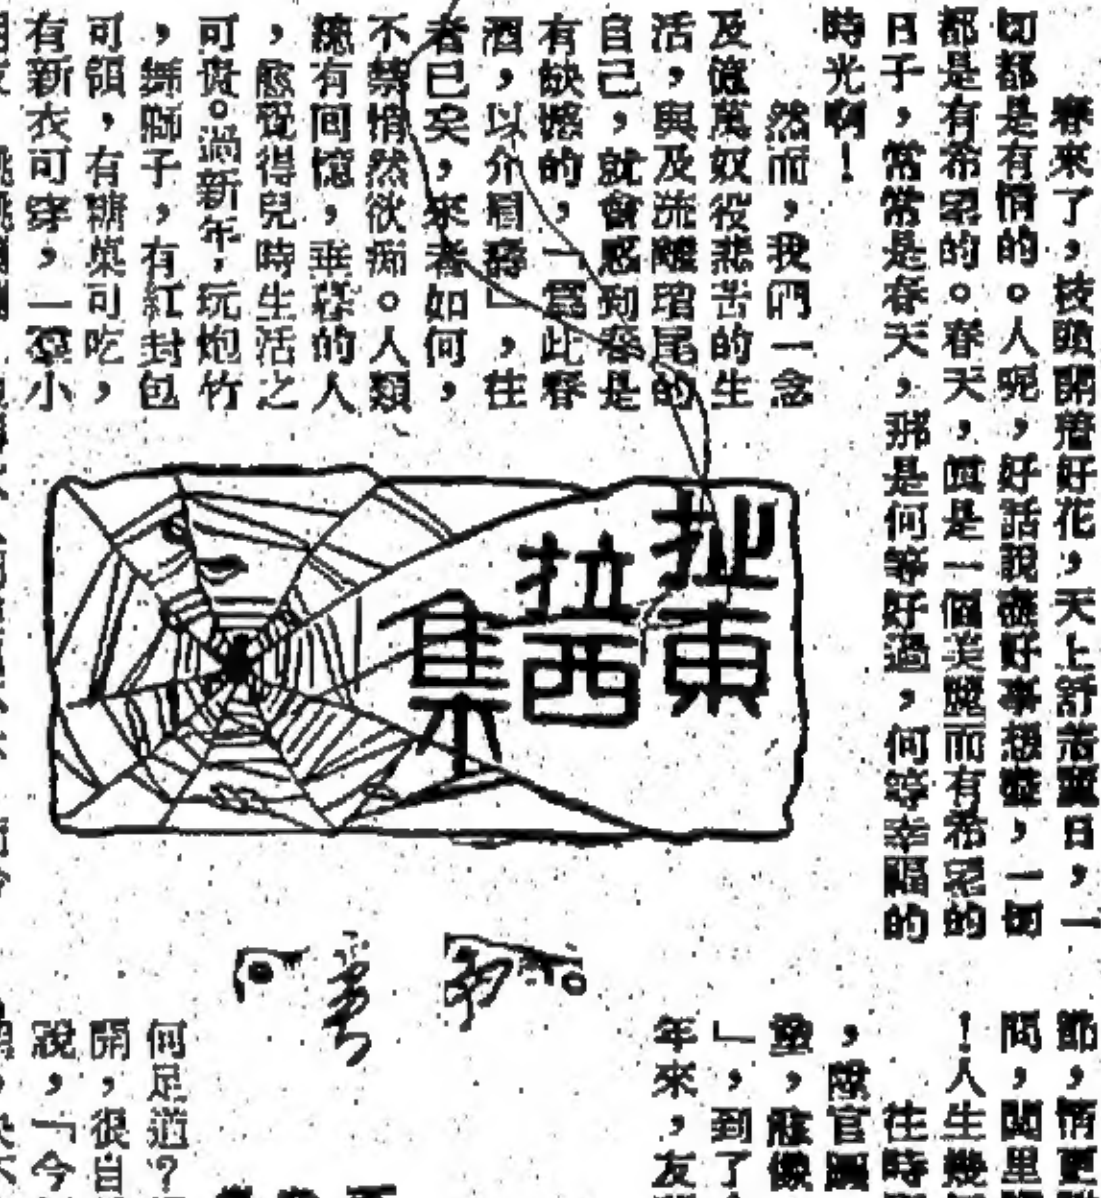 春來了，枝頭開着好花，天上舒着麗日，一
切都是有情的。人呢，好話說盡好事想盡，一切
都是有希望的。春天，眞是一個美麗而有希望的
日子，常常是春天，那是何等好過，何等幸福的
時光啊！
然而，我們一念
及億萬奴役悲苦的生
活，與及流離瑣尾的
自己，就會感到春是
有缺憾的，「爲此春
酒，以介眉壽」，往
者已矣，來者如何，
不禁悄然欲痴。人類
總有回憶，垂暮的人
，愈覺得兒時生活之
可貴。過新年，玩炮竹
，舞獅子，有紅封包
可領，有糖菓可吃，
有新衣可穿，一羣小
扯東
拉西
集
節，情更
間，閭里
！人生幾
往時
，隙官
，到了
年來，友
何足道？
開，很自
說，「今